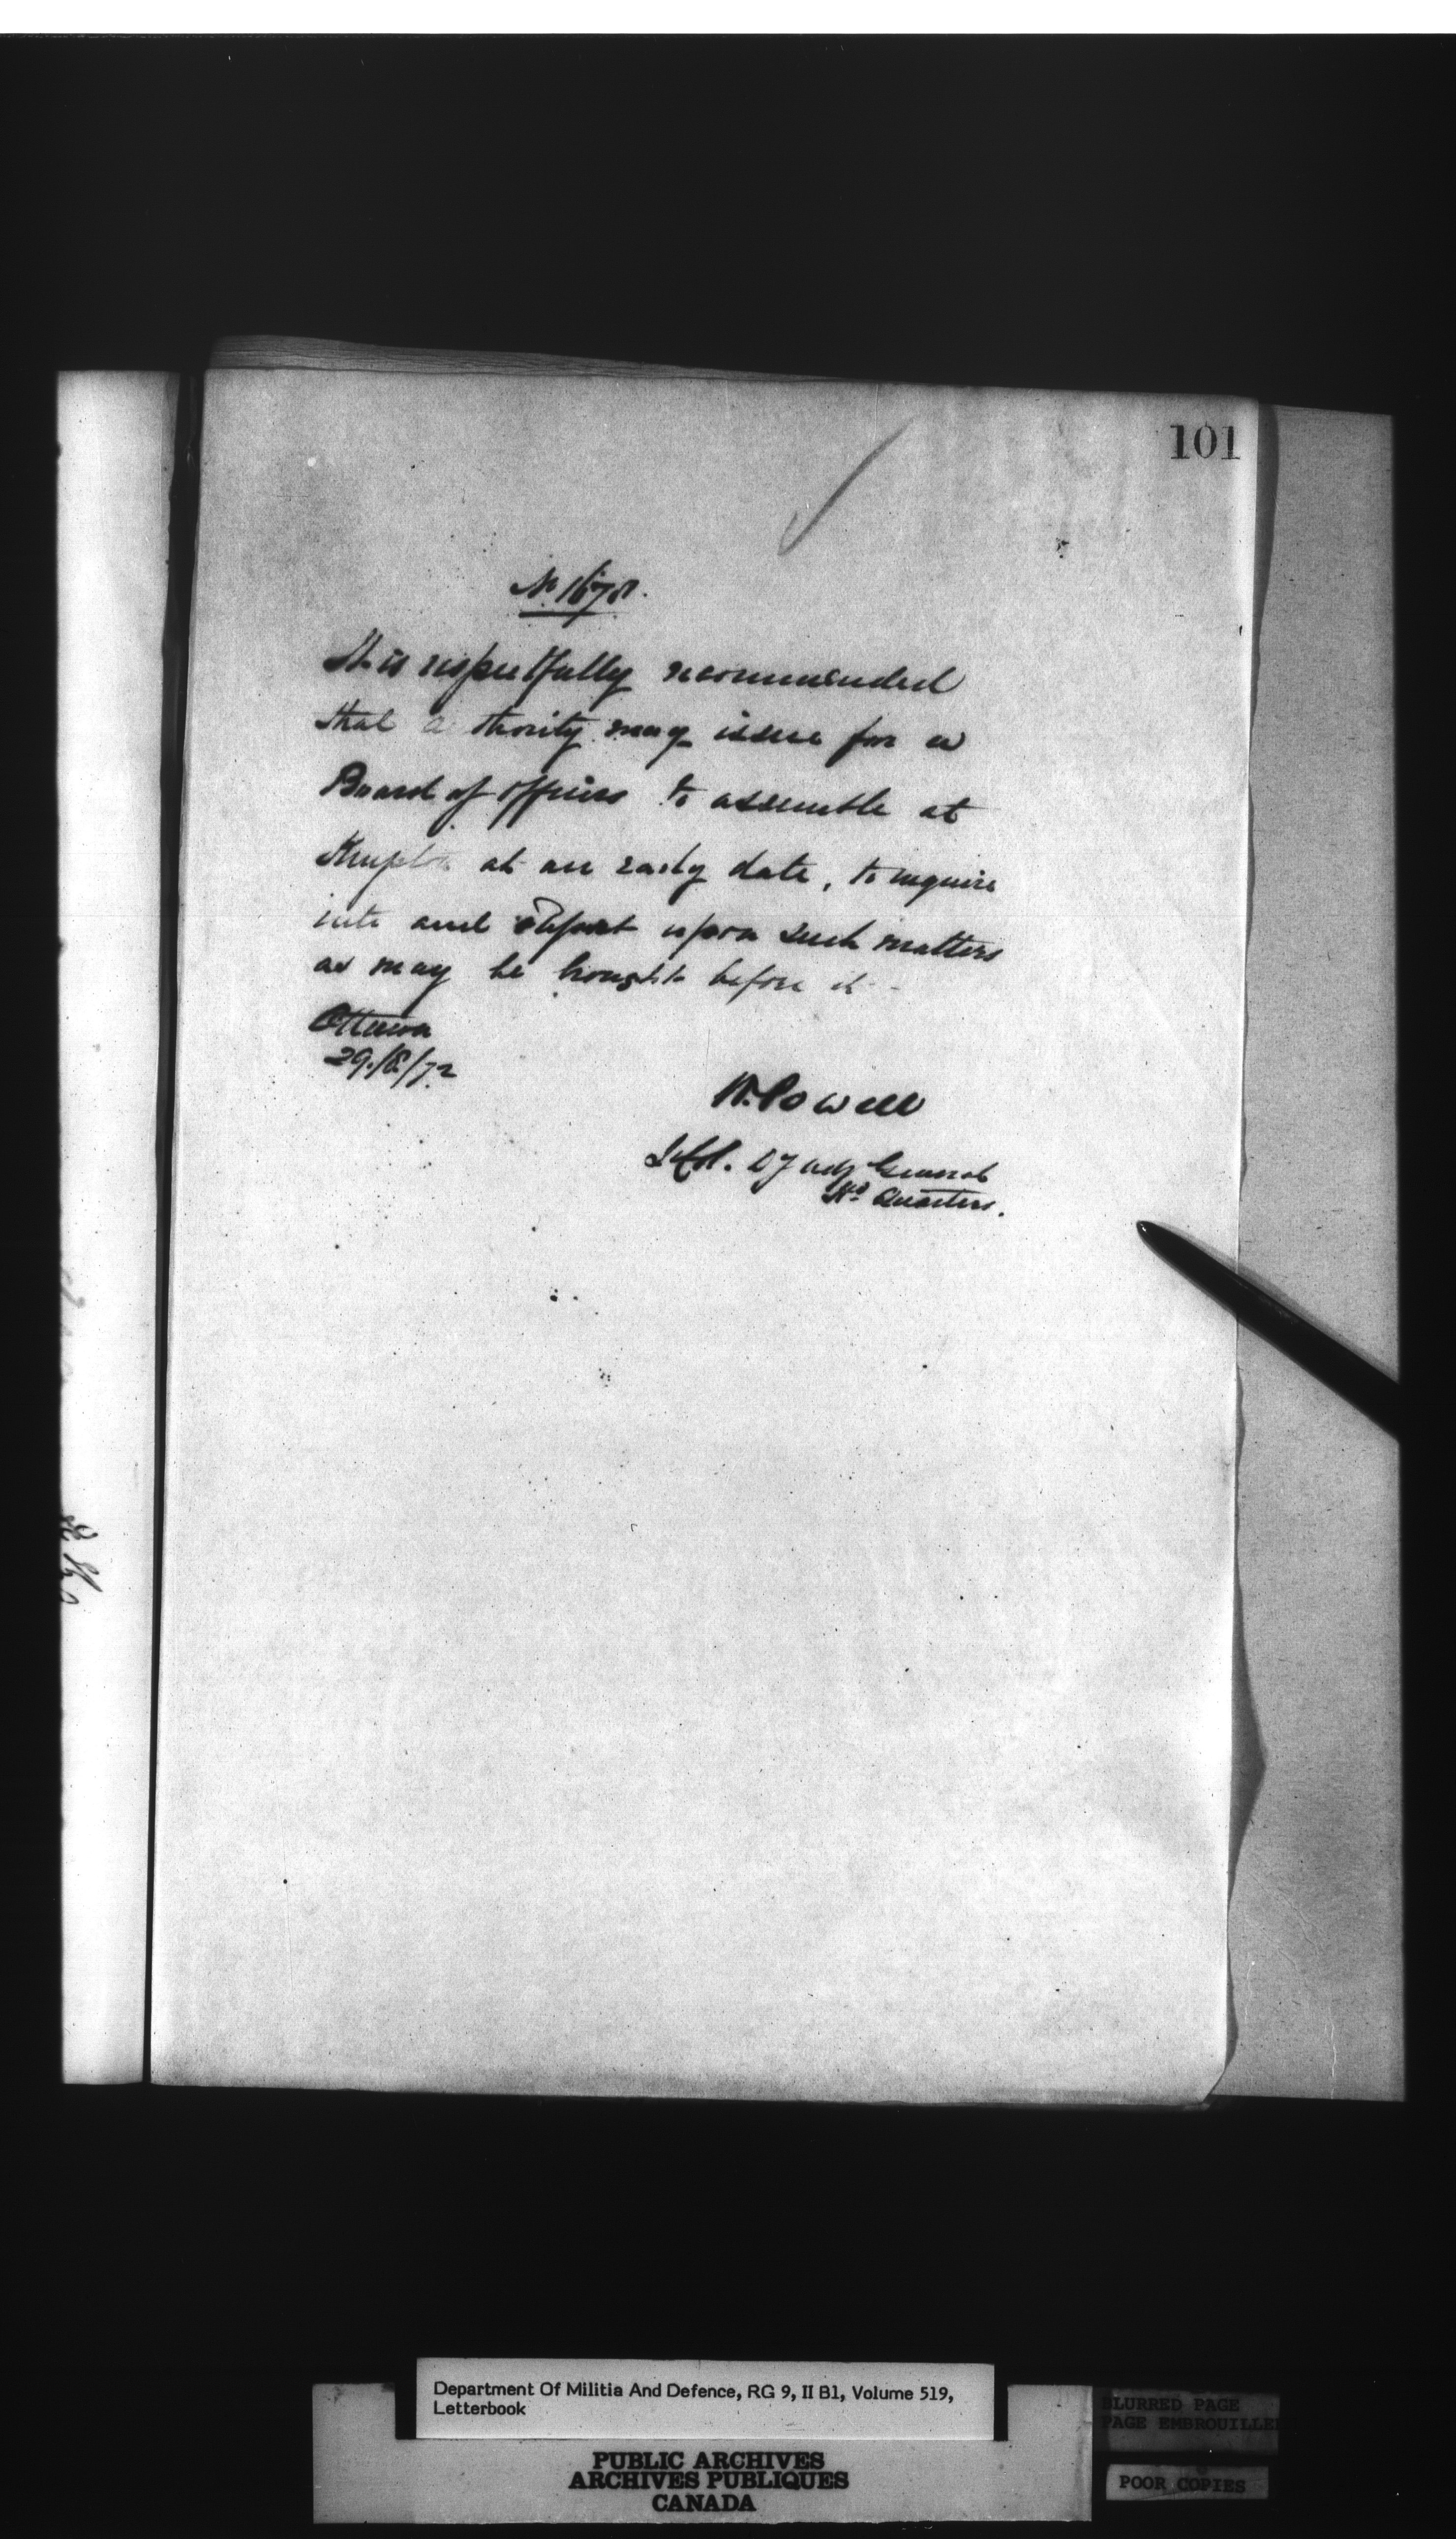 101
No. 1678.
It is respectfully recommended
that a thority may issue for a
Board of Officers to assemble at
at an early date, to inquire
into and Report upon such matters
as may be brought before it -
Ottawa
29./8/72
W. Powell
Lt Col. Dy Adj General
Hd Quarters.
Department Of Militia And Defence, RG 9, II B1, Volume 519,
Letterbook
PUBLIC ARCHIVES
ARCHIVES PUBLIQUES
CANADA
BLURRED PAGE
PAGE EMBROUILLE
POOR COPIES